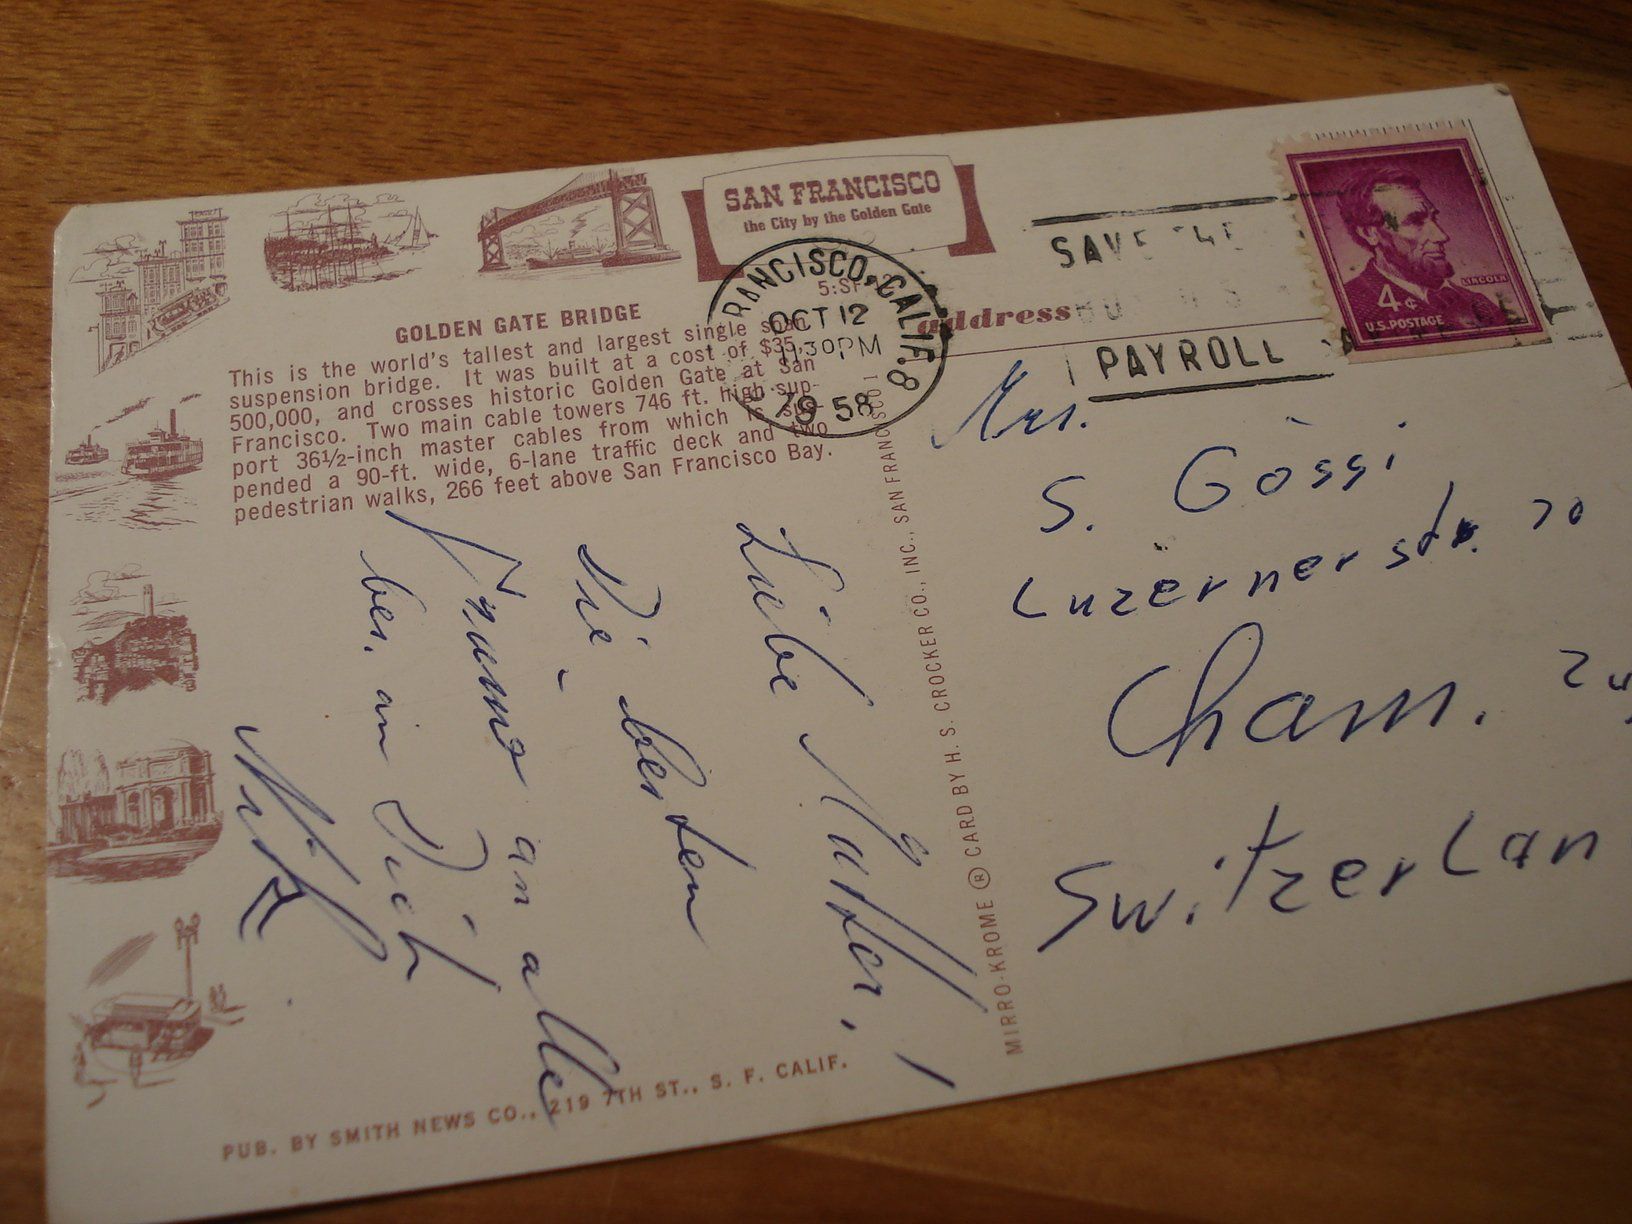 SAN FRANCISCO
the City by the Golden Gate
GOLDEN GATE BRIDGE
This is the world's tallest and largest single span
suspension bridge. It was built at a cost of $35,-
500,000, and crosses historic Golden Gate at San
Francisco. Two main cable towers 746 ft. high sup-
port 36½-inch master cables from which is sus-
pended a 90-ft. wide, 6-lane traffic deck and two
pedestrian walks, 266 feet above San Francisco Bay.
FRANCISCO, CALIF. 8
OCT 12
11 30 PM
1958
SAVE THE
PAYROLL
address
4¢
U.S. POSTAGE
LINCOLN
Mrs.
S. Gössi
Luzernerstr. 70
Cham. Zug
Switzerlan
Liebe Mutter,
Die besten
an alle
bes. an Dich
MIRRO-KROME ® CARD BY H. S. CROCKER CO., INC., SAN FRANCISCO 1
PUB. BY SMITH NEWS CO., 219 7TH ST., S. F. CALIF.